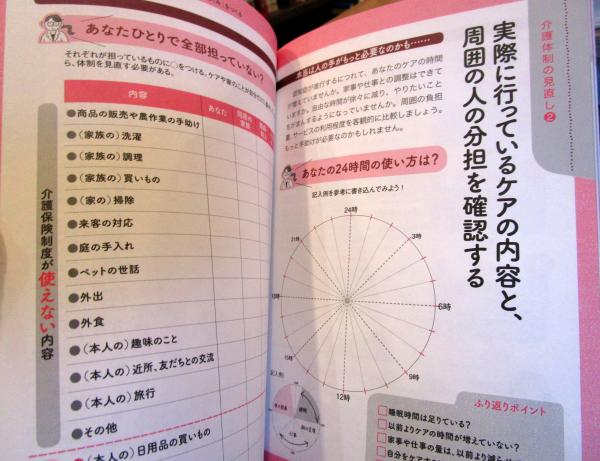 介護体制の見直し❷
実際に行っているケアの内容と、
周囲の人の分担を確認する
本当は人の手がもっと必要なのかも……
認知症が進行するにつれて、あなたのケアの時間
が増えていませんか。家事や仕事との調整はできて
いますか。自由な時間が徐々に減り、やりたいこと
をがまんするようになっていませんか。周囲の負担
量、サービスの利用程度を客観的に比較しましょう。
もっと手助けが必要なのかもしれません。
あなたの24時間の使い方は？
記入例を参考に書き込んでみよう！
24時
3時
6時
9時
12時
15時
18時
21時
記入例
ふり返りポイント
□睡眠時間は足りている？
□以前よりケアの時間が増えていない？
□家事や仕事の量は、以前より減ら
あなたひとりで全部担っていない？
それぞれが担っているものに○をつける。
ら、体制を見直す必要がある。
内容
あなた
同居の
家族
介護保険制度が使えない内容
●商品の販売や農作業の手助け
●（家族の）洗濯
●（家族の）調理
●（家族の）買いもの
●（家の）掃除
●来客の対応
●庭の手入れ
●ペットの世話
●外出
●外食
●（本人の）趣味のこと
●（本人の）近所、友だちとの交流
●（本人の）旅行
●その他
●（本人の）日用品の買いもの